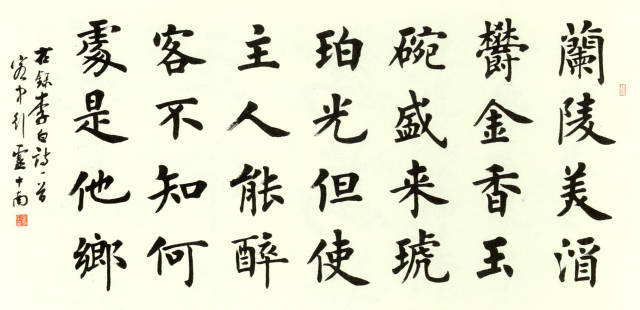 蘭陵美酒
欝金香玉
碗盛来琥
珀光但使
主人能醉
客不知何
處是他鄉
右録李白詩一首
客中行 盧中南